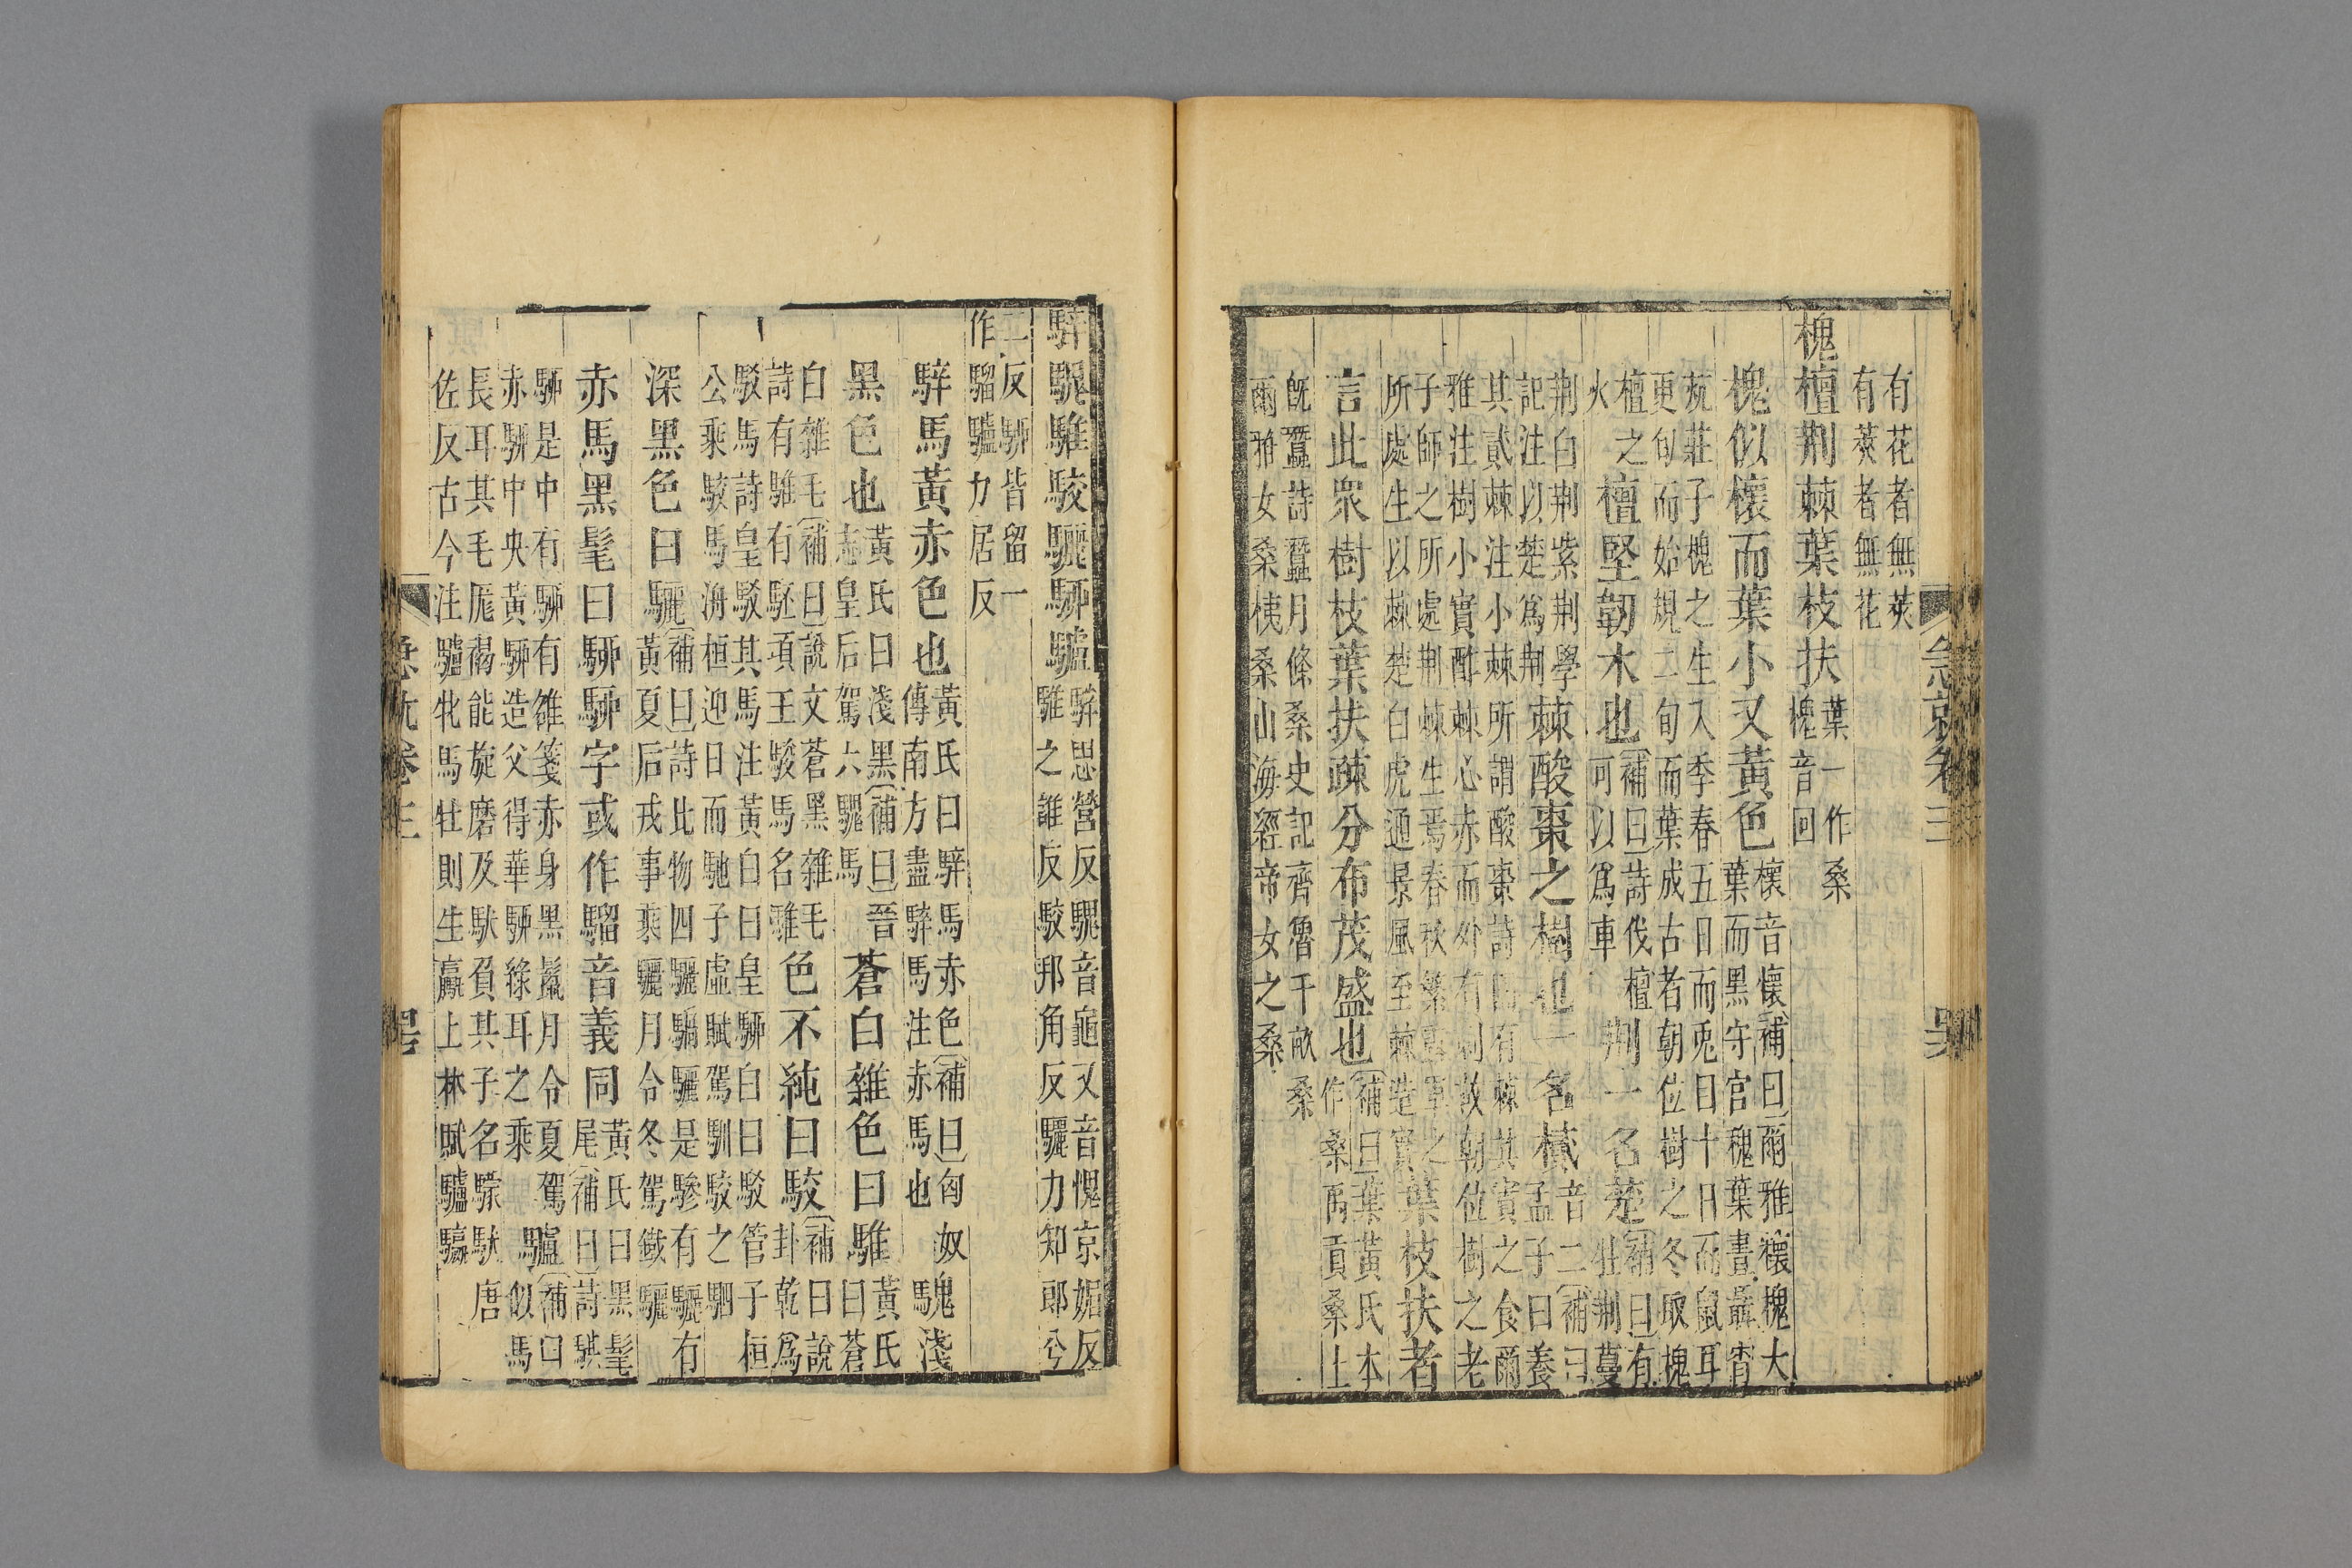 有花者無莢
有莢者無花
槐檀荆棘葉枝扶葉一作桑
槐音回
槐似櫰而葉小又黃色櫰音懷補曰爾雅櫰槐大
葉而黑守宮槐葉晝聶宵
炕莊子槐之生入季春五日而兎目十日而鼠耳
更旬而始規二旬而葉成古者朝位樹之冬取槐
檀之
火
檀堅韌木也補曰詩伐檀
可以爲車
荆一名楚補曰有
牡荆蔓
荆白荆紫荆學
記注以楚爲荆
棘酸棗之樹也一名樲音二補曰
孟子曰養
其貳棘注小棘所謂酸棗詩園有棘其實之食爾
雅注樹小實酢棘心赤而外有刺故朝位樹之老
子師之所處荆棘生焉春秋繁露草之
所處生以棘楚白虎通景風至棘造實
葉枝扶者
言此衆樹枝葉扶疎分布茂盛也補曰葉黃氏本
作桑禹貢桑土
旣蠶詩蠶月條桑史記齊魯千畝桑
爾雅女桑桋桑山海經帝女之桑
急就卷三
騂騩騅駮驪駵驢騂思營反騩音龜又音愧京媚反
騅之誰反駮邦角反驪力知郎兮
二反駵皆留一
作騮驢力居反
騂馬黃赤色也黃氏曰騂馬赤色補曰匈奴
傳南方盡騂馬注赤馬也
騩淺
黑色也黃氏曰淺黑補曰晉
志皇后駕六騩馬
蒼白雜色曰騅黃氏
曰蒼
白雜毛補曰說文蒼黑雜毛
詩有騅有駓項王駿馬名騅
色不純曰駮補曰說
卦乾爲
駁馬詩皇駁其馬注黃白曰皇駵白曰駁管子桓
公乘駮馬海桓迎日而馳子虛賦駕馴駮之駟
深黑色曰驪補曰詩比物四驪騧驪是驂有驪有
黃夏后戎事乘驪月令冬駕鐵驪
赤馬黑髦曰駵駵字或作騮音義同黃氏曰黑髦
尾補曰詩騏
駵是中有駵有雒箋赤身黑鬣月令夏駕
赤駵中央黃駵造父得華駵綠耳之乘
驢補曰
似馬
長耳其毛厖褐能旋磨及馱負其子名騾馱唐
佐反古今注驢牝馬牡則生驘上林賦驢驘
急就卷三